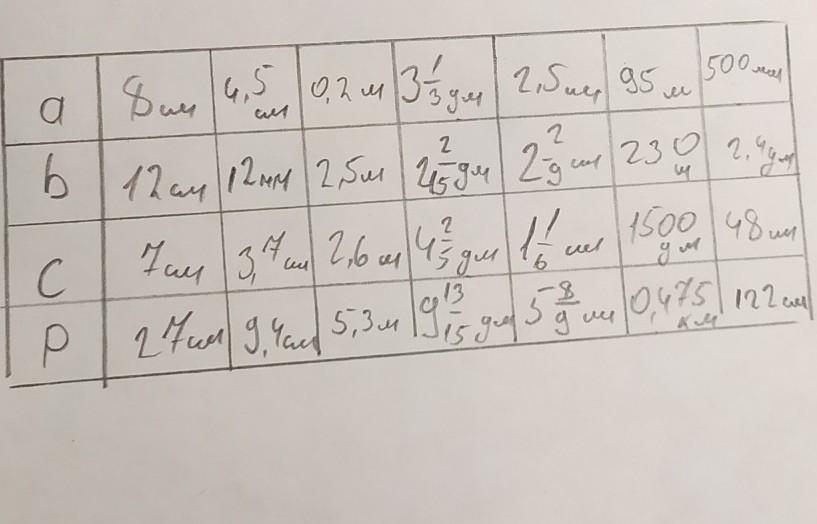 a 8 см 4,5 см 0,2 м 3 1/3 дм 2,5 см 95 м 500 мм
b 12 см 12 мм 2,5 м 2 2/15 дм 2 2/9 см 230 м 2,4 дм
c 7 см 3,7 см 2,6 м 4 2/5 дм 1 1/6 см 1500 дм 48 см
P 27 см 9,4 см 5,3 м 9 13/15 дм 5 8/9 см 0,475 км 122 см